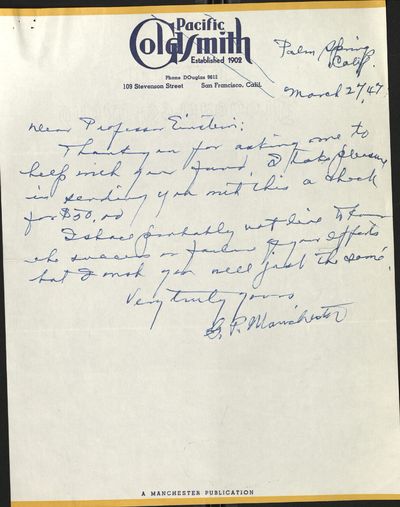 Pacific
Goldsmith
Established 1902
Phone DOuglas 6612
109 Stevenson Street San Francisco, Calif.
Palm Springs
Calif.
March 27, 47
Dear Professor Einstein:
Thank you for asking me to
help with your fund. I take pleasure
in sending you with this a check
for $50.00
I shall probably not live to know
the success or failure of your efforts
but I wish you well just the same
Very truly yours
P. Manchester
A MANCHESTER PUBLICATION